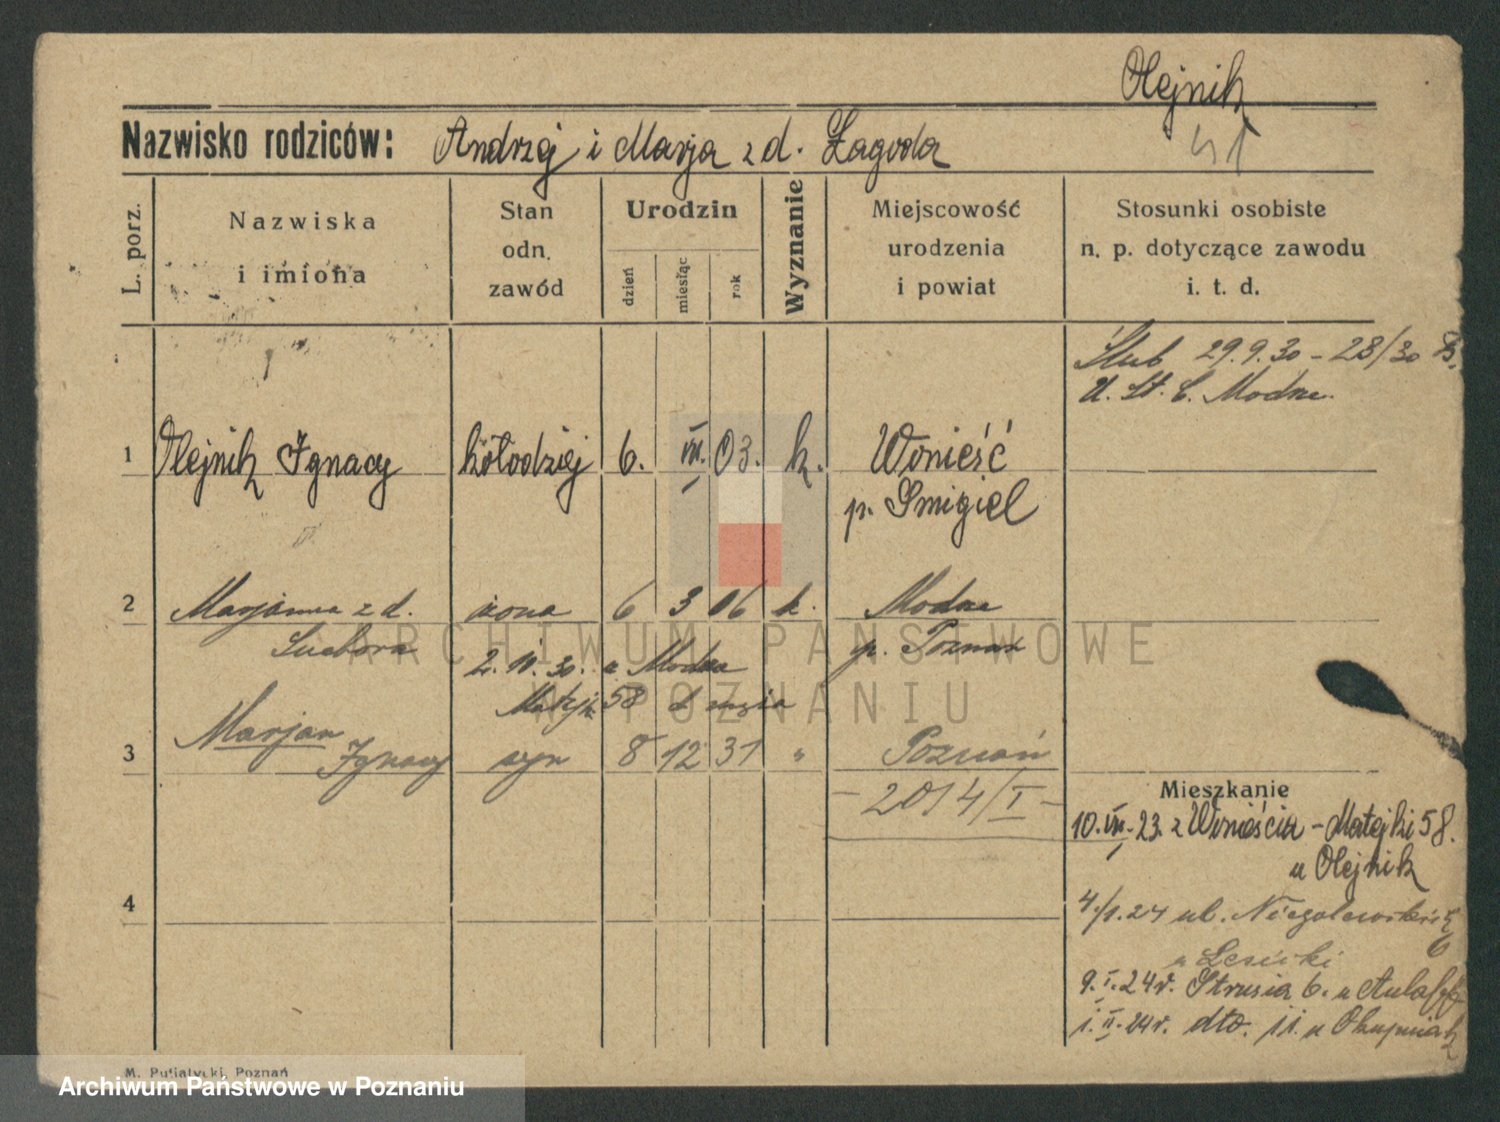 Olejnik
Nazwisko rodziców: Andrzej i Marja z d. Żagoda
L. porz.
Nazwiska
i imiona
Stan
odn.
zawód
Urodzin
dzień
miesiąc
rok
Wyznanie
Miejscowość
urodzenia
i powiat
Stosunki osobiste
n. p. dotyczące zawodu
i. t. d.
Ślub 29.9.30 – 28/30 B.
U. St. C. Modrze.
1 Olejnik Ignacy kołodziej 6. VII. 03. k. Wonieść
p. Śmigiel
2 Marjanna z d. żona 6 3 06 k. Modrze
Suchora p. Poznań
2. 10. 30. z Modrza
Matejki 58 d męża
3 Marjan
Ignacy syn 8 12 31 " Poznań
– 2014/I –
Mieszkanie
10. VII. 23. z Wonieścia – Matejki 58.
u Olejnik
4
4./1. 24 ul. Niegolewskich
6
u
9. I. 24 r. Strusia 6. u
1. II. 24 r. dto. 11. u
M. Putiatycki, Poznań
ARCHIWUM PAŃSTWOWE
W POZNANIU
Archiwum Państwowe w Poznaniu